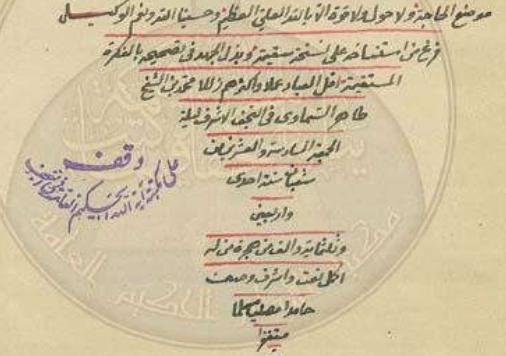 موضع الحاجة ولا حول ولا قوة الا بالله العلي العظيم وحسبنا الله ونعم الوكيل
فرغ من استنساخه على نسخة سقيمة وبذل الجهد في تصحيحه بالفكرة
المستقيمة اقل العباد عملا واكثرهم زللا محمد بن الشيخ
طاهر السماوي في النجف الاشرف ليلة
الجمعة السادسة والعشرين من
شعبان سنة احدى
واربعين
وثلثمائة والف من هجرة من له
اكمل نعت واشرف وصف
حامدا مصليا مسلما
وقف
على مكتبة اية الله الحكيم العامة في النجف